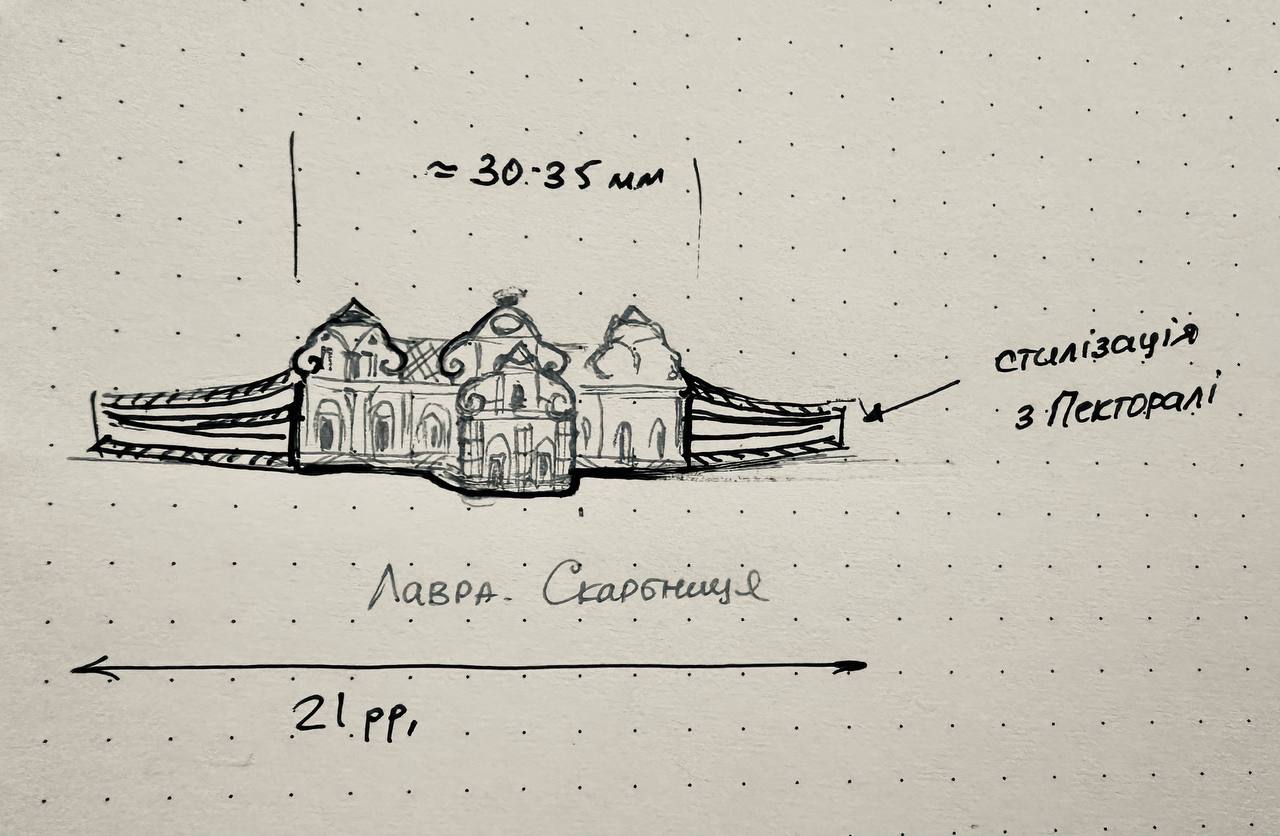 ≈ 30-35 мм
стилізація
з Пекторалі
Лавра. Скарбниця
21 рр,